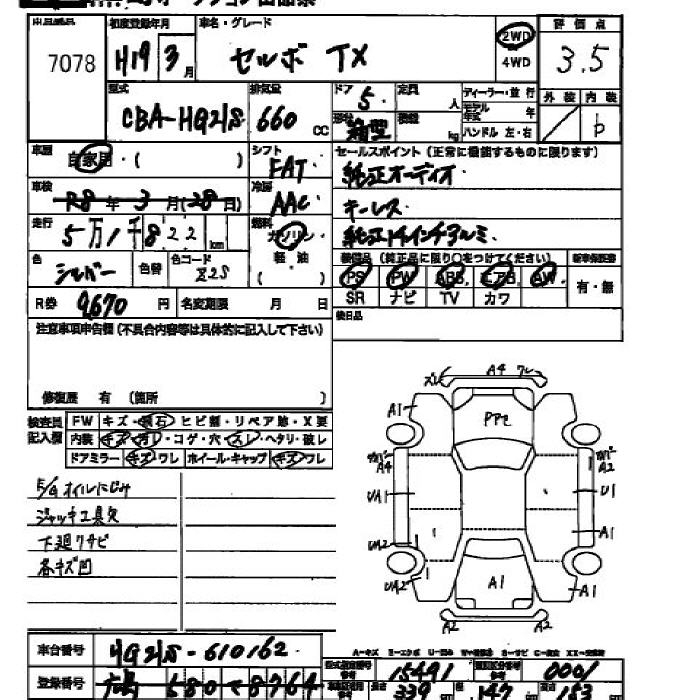 7078
初度登録年月
H19 3月
車名・グレード
セルボ TX
2WD
4WD
評価点
3.5
型式
CBA-HG21S
排気量
660 CC
ドア
5.
定員
人
箱型
kg
ディーラー・並行
モデル年式 年
ハンドル 左・右
外装 内装
b
車歴
自家用・( )
シフト
FAT.
セールスポイント (正常に機能するものに限ります)
純正オーディオ
キーレス.
純正14インチアルミ.
車検
R8年 3月(28日)
冷房
AAC
走行
5万1千822 km
燃料
ガソリン・
軽・油
色
シルバー
色替
色コード
Z2S
装備品 (純正品に限り○をつけてください)
新車保証書
PS PW ABS. エアB AW.
SR ナビ TV カワ
有・無
R券 9,670円
名変期限 月 日
後日品
注意事項申告欄 (不具合内容等は具体的に記入して下さい)
修復歴 有 (箇所 )
検査員記入欄
FW キズ・飛石・ヒビ割・リペア跡・X要
内装 キズ・汚レ・コゲ・穴・スレ・ヘタリ・破レ
ドアミラー キズ・ワレ・ホイール・キャップ キズ・ワレ
E/G オイルにじみ
ジャッキ工具欠
下廻りサビ
各キズ凹
A4 ワレ
A1
PP2
A4
A2
UA1
U1
UA2
A1
UA2
A1
A1
A2
A2
車台番号
HG21S-610162
登録番号
580 8764
型式指定番号
15491
類別区分番号
0001
長さ 339
幅 147
高さ 153